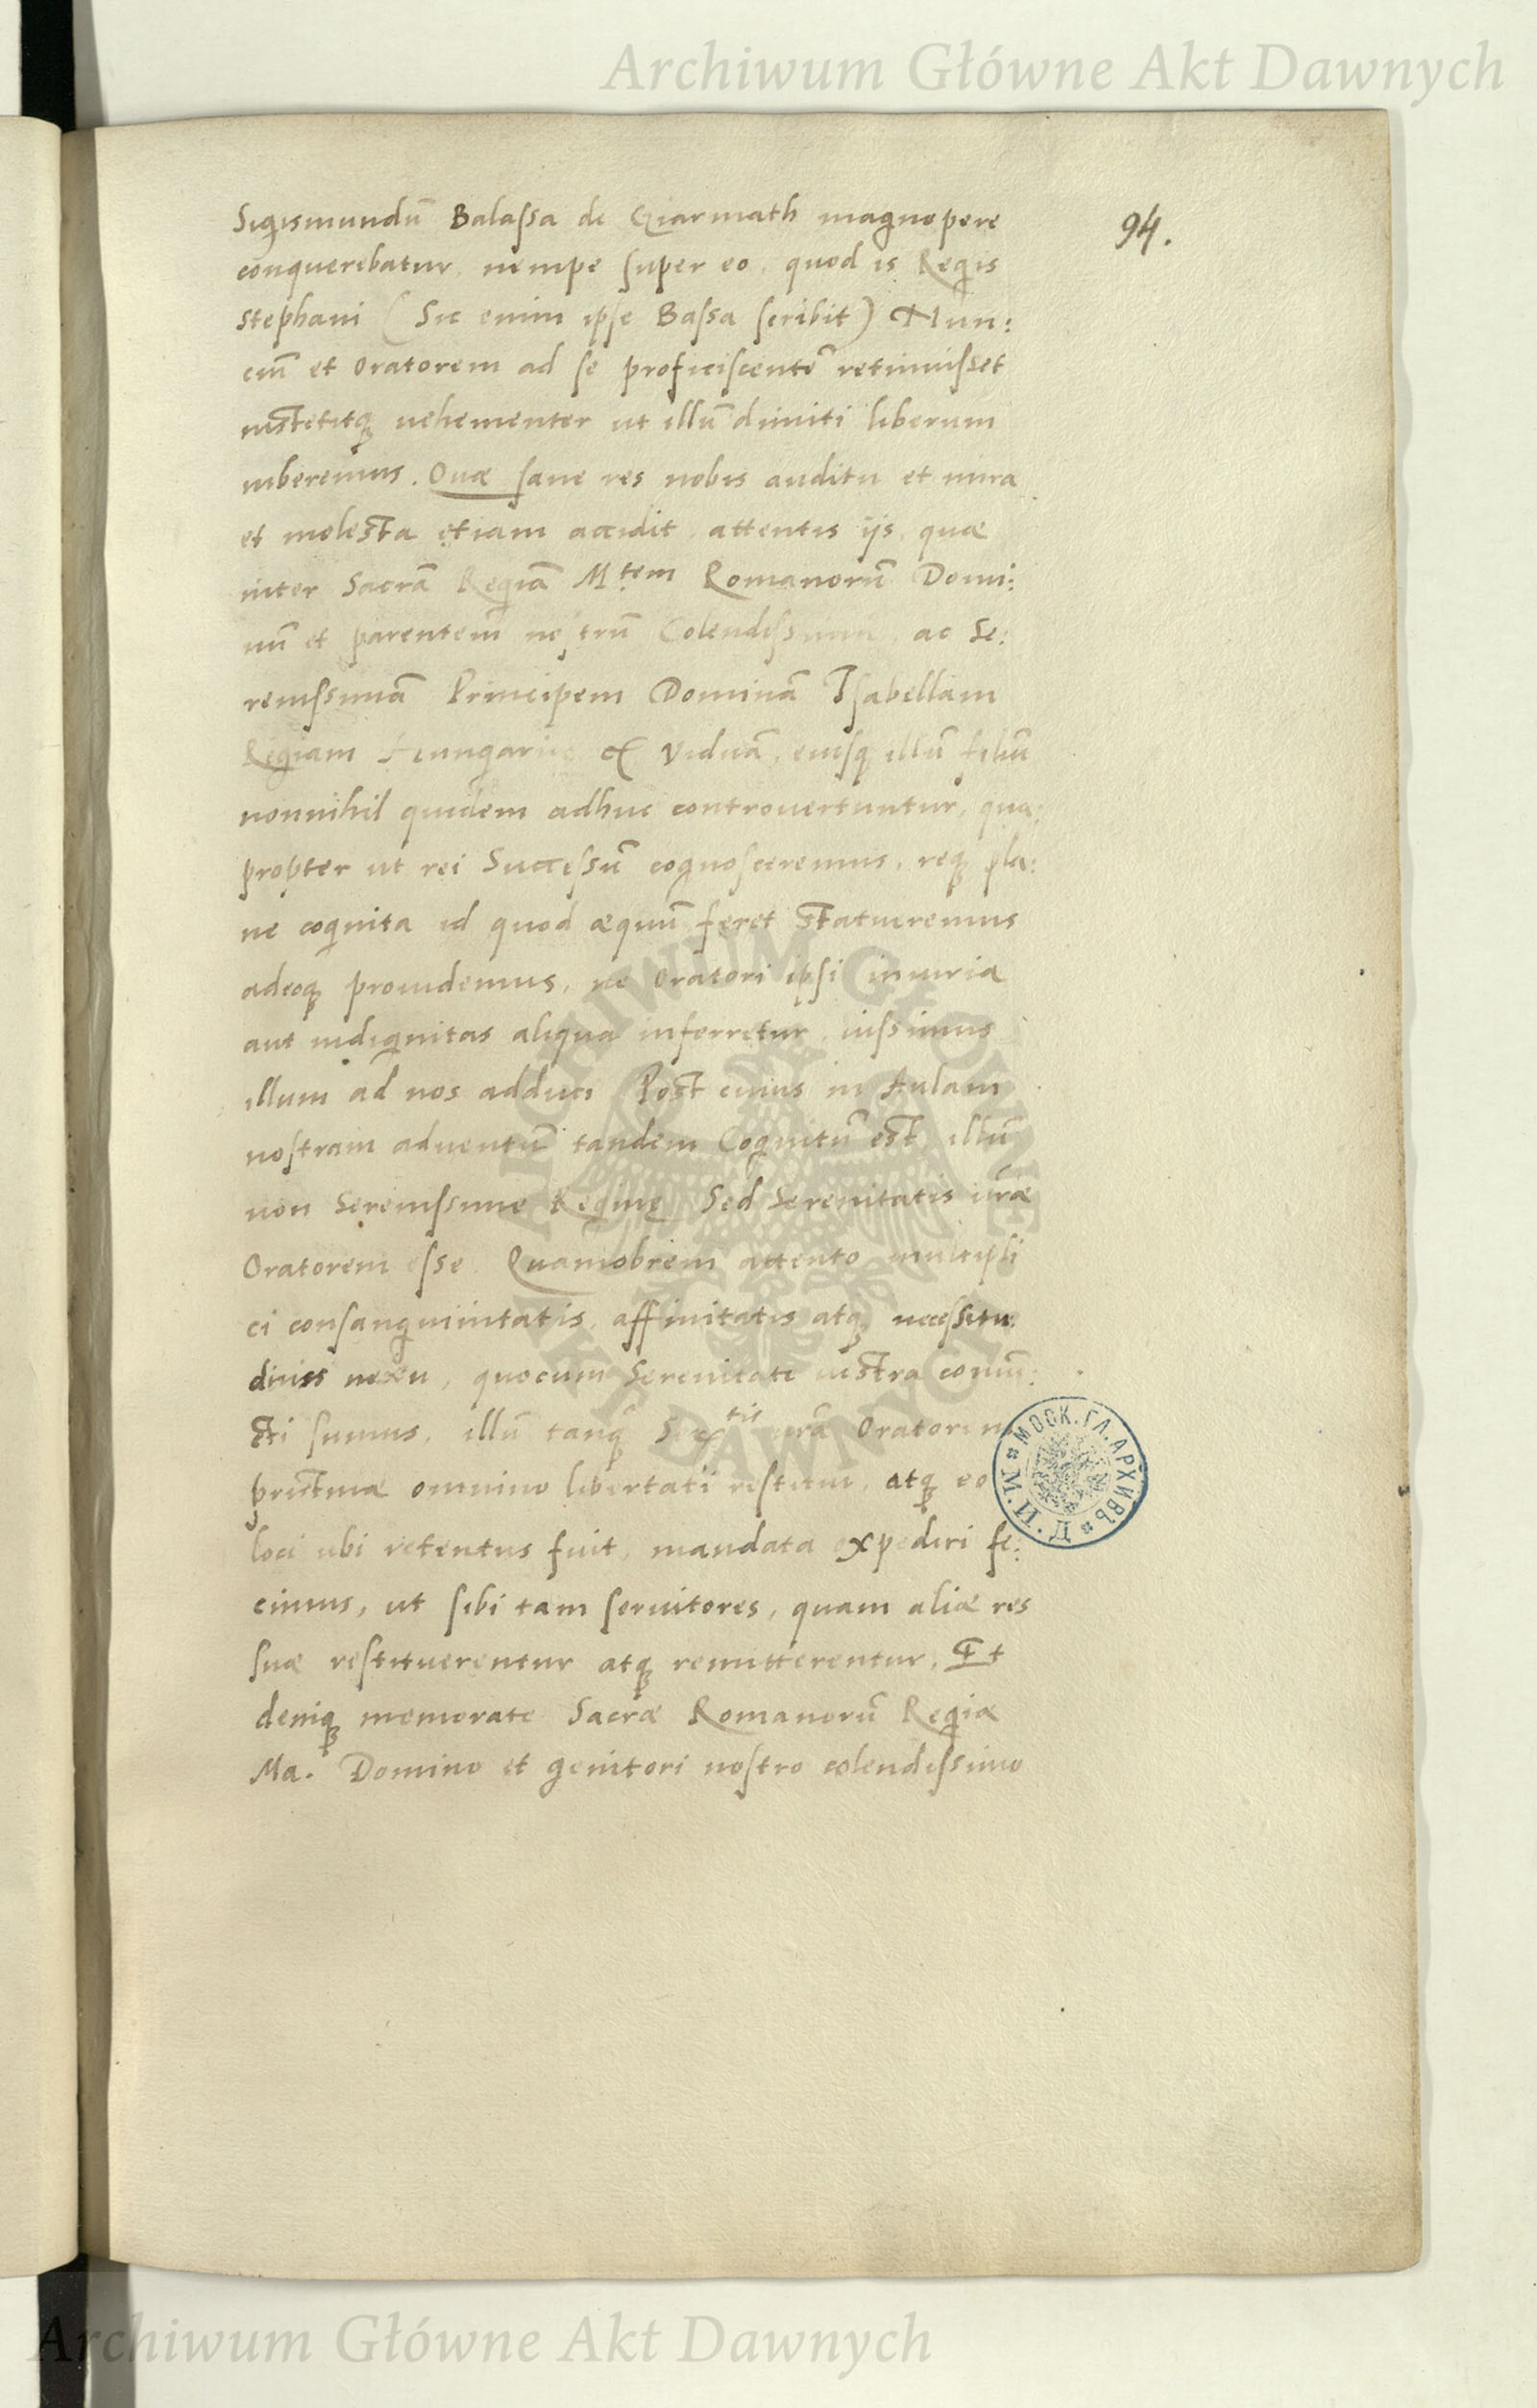 Archiwum Główne Akt Dawnych
94.
Sigismundū Balassa de Giarmath magnopere
conquerebatur, nempe super eo, quod is Regis
Stephani (Sic enim ipse Bassa scribit) Nun:
ciū et Oratorem ad se proficiscentē retinuisset
instititq; vehementer ut illū dimitti liberum
iuberemus. Quæ sane res nobis auditu et mira
et molesta etiam accidit, attentis ijs, quæ
inter Sacrā Regiā M.tem Romanorū Domi:
nū et parentem nostrū Colendissimum, ac Se:
renissimā Principem Dominā Isabellam
Reginam Hungariæ &c Viduā, eiusq; illū filiū
nonnihil quidem adhuc controvertuntur, qua:
propter ut rei Successū cognosceremus, req; pla:
ne cognita id quod æquū feret statueremus
adeoq; providemus, ne Oratori ipsi iniuria
aut indignitas aliqua inferretur, iussimus
illum ad nos adduci. Post cuius in Aulam
nostram adventū tandem Cognitū est, illū
non Serenissime Reginę Sed Serenitatis vr̄æ
Oratorem esse. Quamobrem attento multipli
ci consanguinitatis, affinitatis atq; necessitu:
dinis nexu, quocum Serenitati vestra coniū:
cti sumus, illū tanq̄ Ser.tis vr̄æ Oratorem
pristinæ omnino libertati restitui, atq; eo
loci ubi retentus fuit, mandata expediri fe:
cimus, ut sibi tam servitores, quam aliæ res
suæ restituerentur atq; remitterentur. Et
deniq; memorate Sacræ Romanorū Regiæ
Ma. Domino et genitori nostro colendissimo
ARCHIWUM GŁÓWNE
AKT DAWNYCH
МОСК. ГЛ. АРХИВЪ
М. И. Д.
Archiwum Główne Akt Dawnych